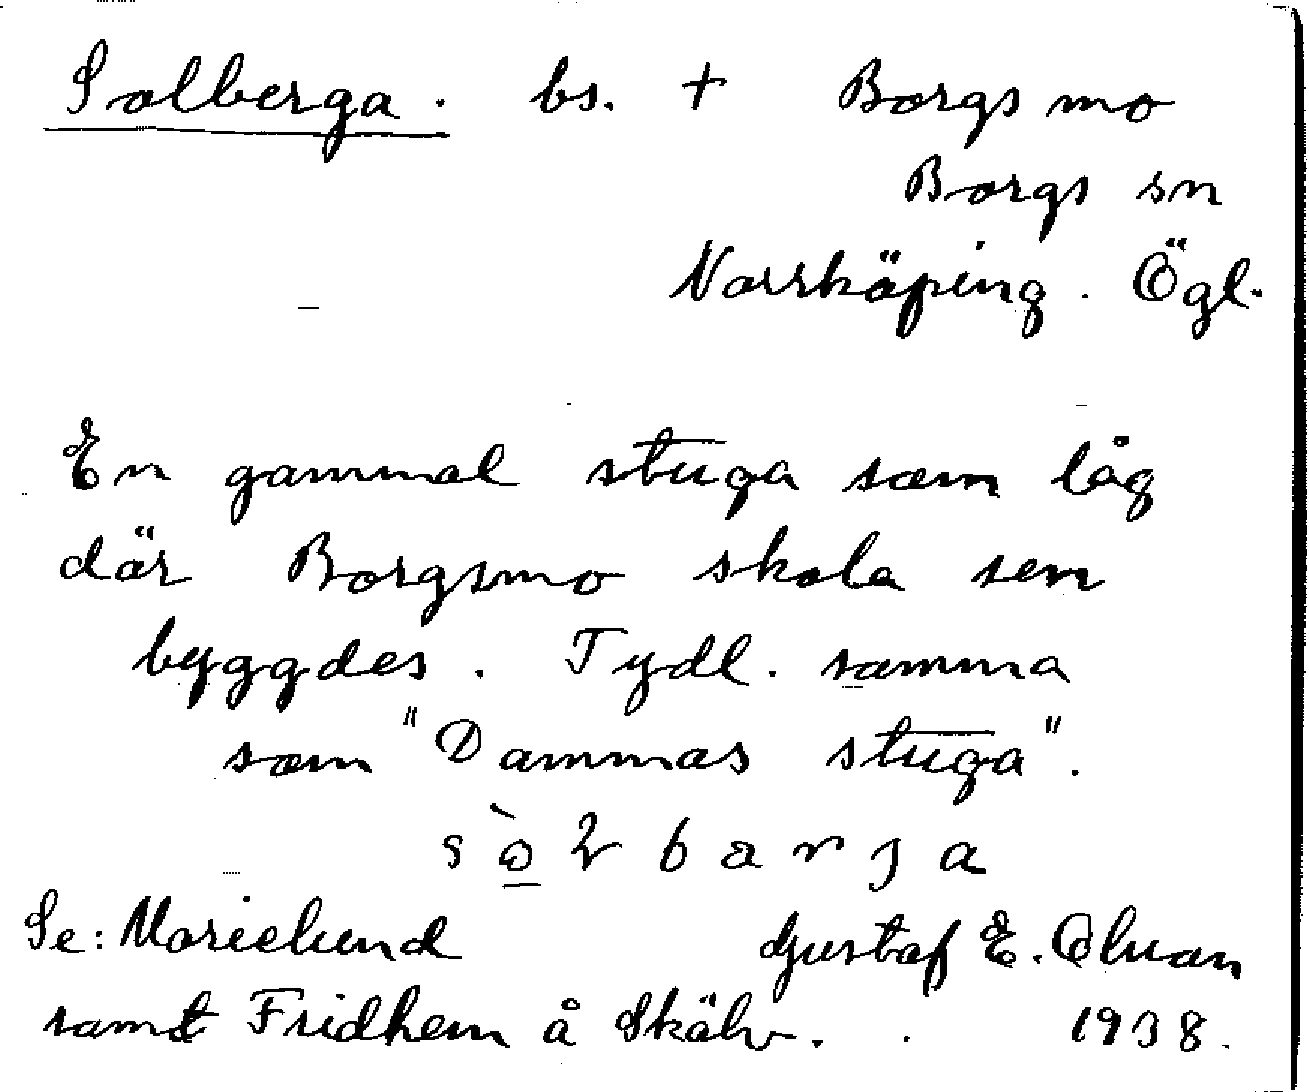 Solberga. bs. + Borgsmo
Borgs sn
Norrköping. Ögl.
En gammal stuga som låg
där Borgsmo skola sen
byggdes. Tydl. samma
som "Dammas stuga".
Se: Marielund Gustaf E. Olson
samt Fridhem å Skälv. 1938.